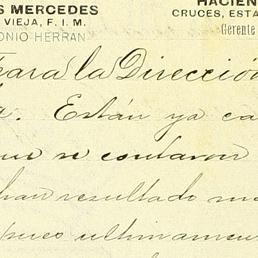 S MERCEDES HACIEN
VIEJA, F. I. M. CRUCES, ESTA
ONIO HERRAN Gerente
para la Dirección
. Están ya ca
que se contaron
han resultado m
pues ultimamen